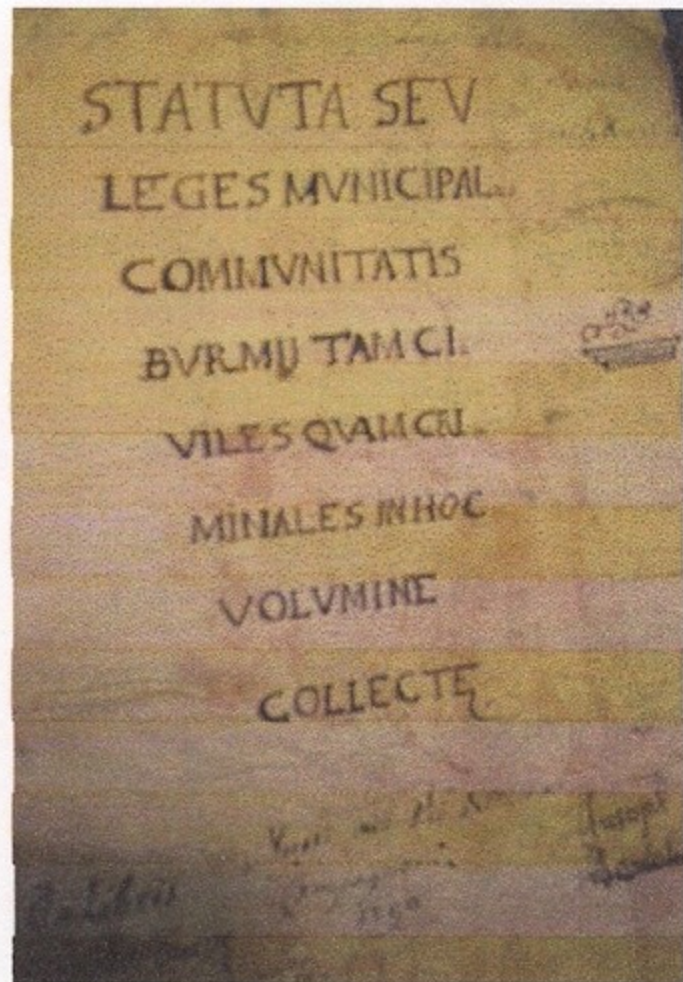 STATVTA SEV
LEGES MVNICIPAL
COMMVNITATIS
BVRMIJ TAM CI
VILES QVAM CRI
MINALES IN HOC
VOLVMINE
COLLECTĘ